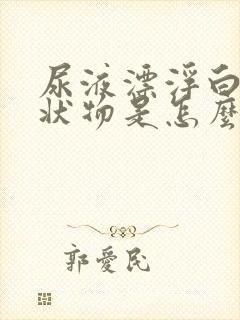 尿液漂浮白
状物是怎麼
郭愛民